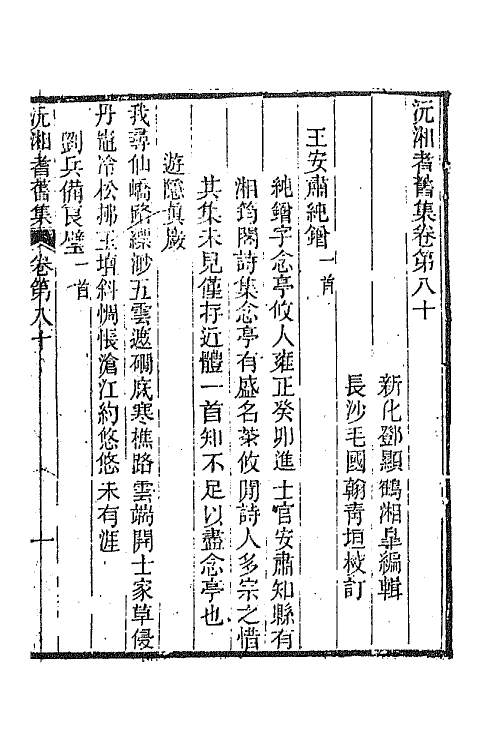 沅湘耆舊集卷第八十
新化鄧顯鶴湘皐編輯
長沙毛國翰靑垣校訂
王安肅純鏳一首
純鏳字念亭攸人雍正癸卯進士官安肅知縣有
湘筠閣詩集念亭有盛名茶攸閒詩人多宗之惜
其集未見僅存近體一首知不足以盡念亭也
遊隱眞巖
我尋仙嶠路縹渺五雲遮磵底寒樵路雲端開士家草侵
丹竈冷松拂玉墖斜惆悵滄江約悠悠未有涯
劉兵備良璧一首
沅湘耆舊集 卷第八十 一